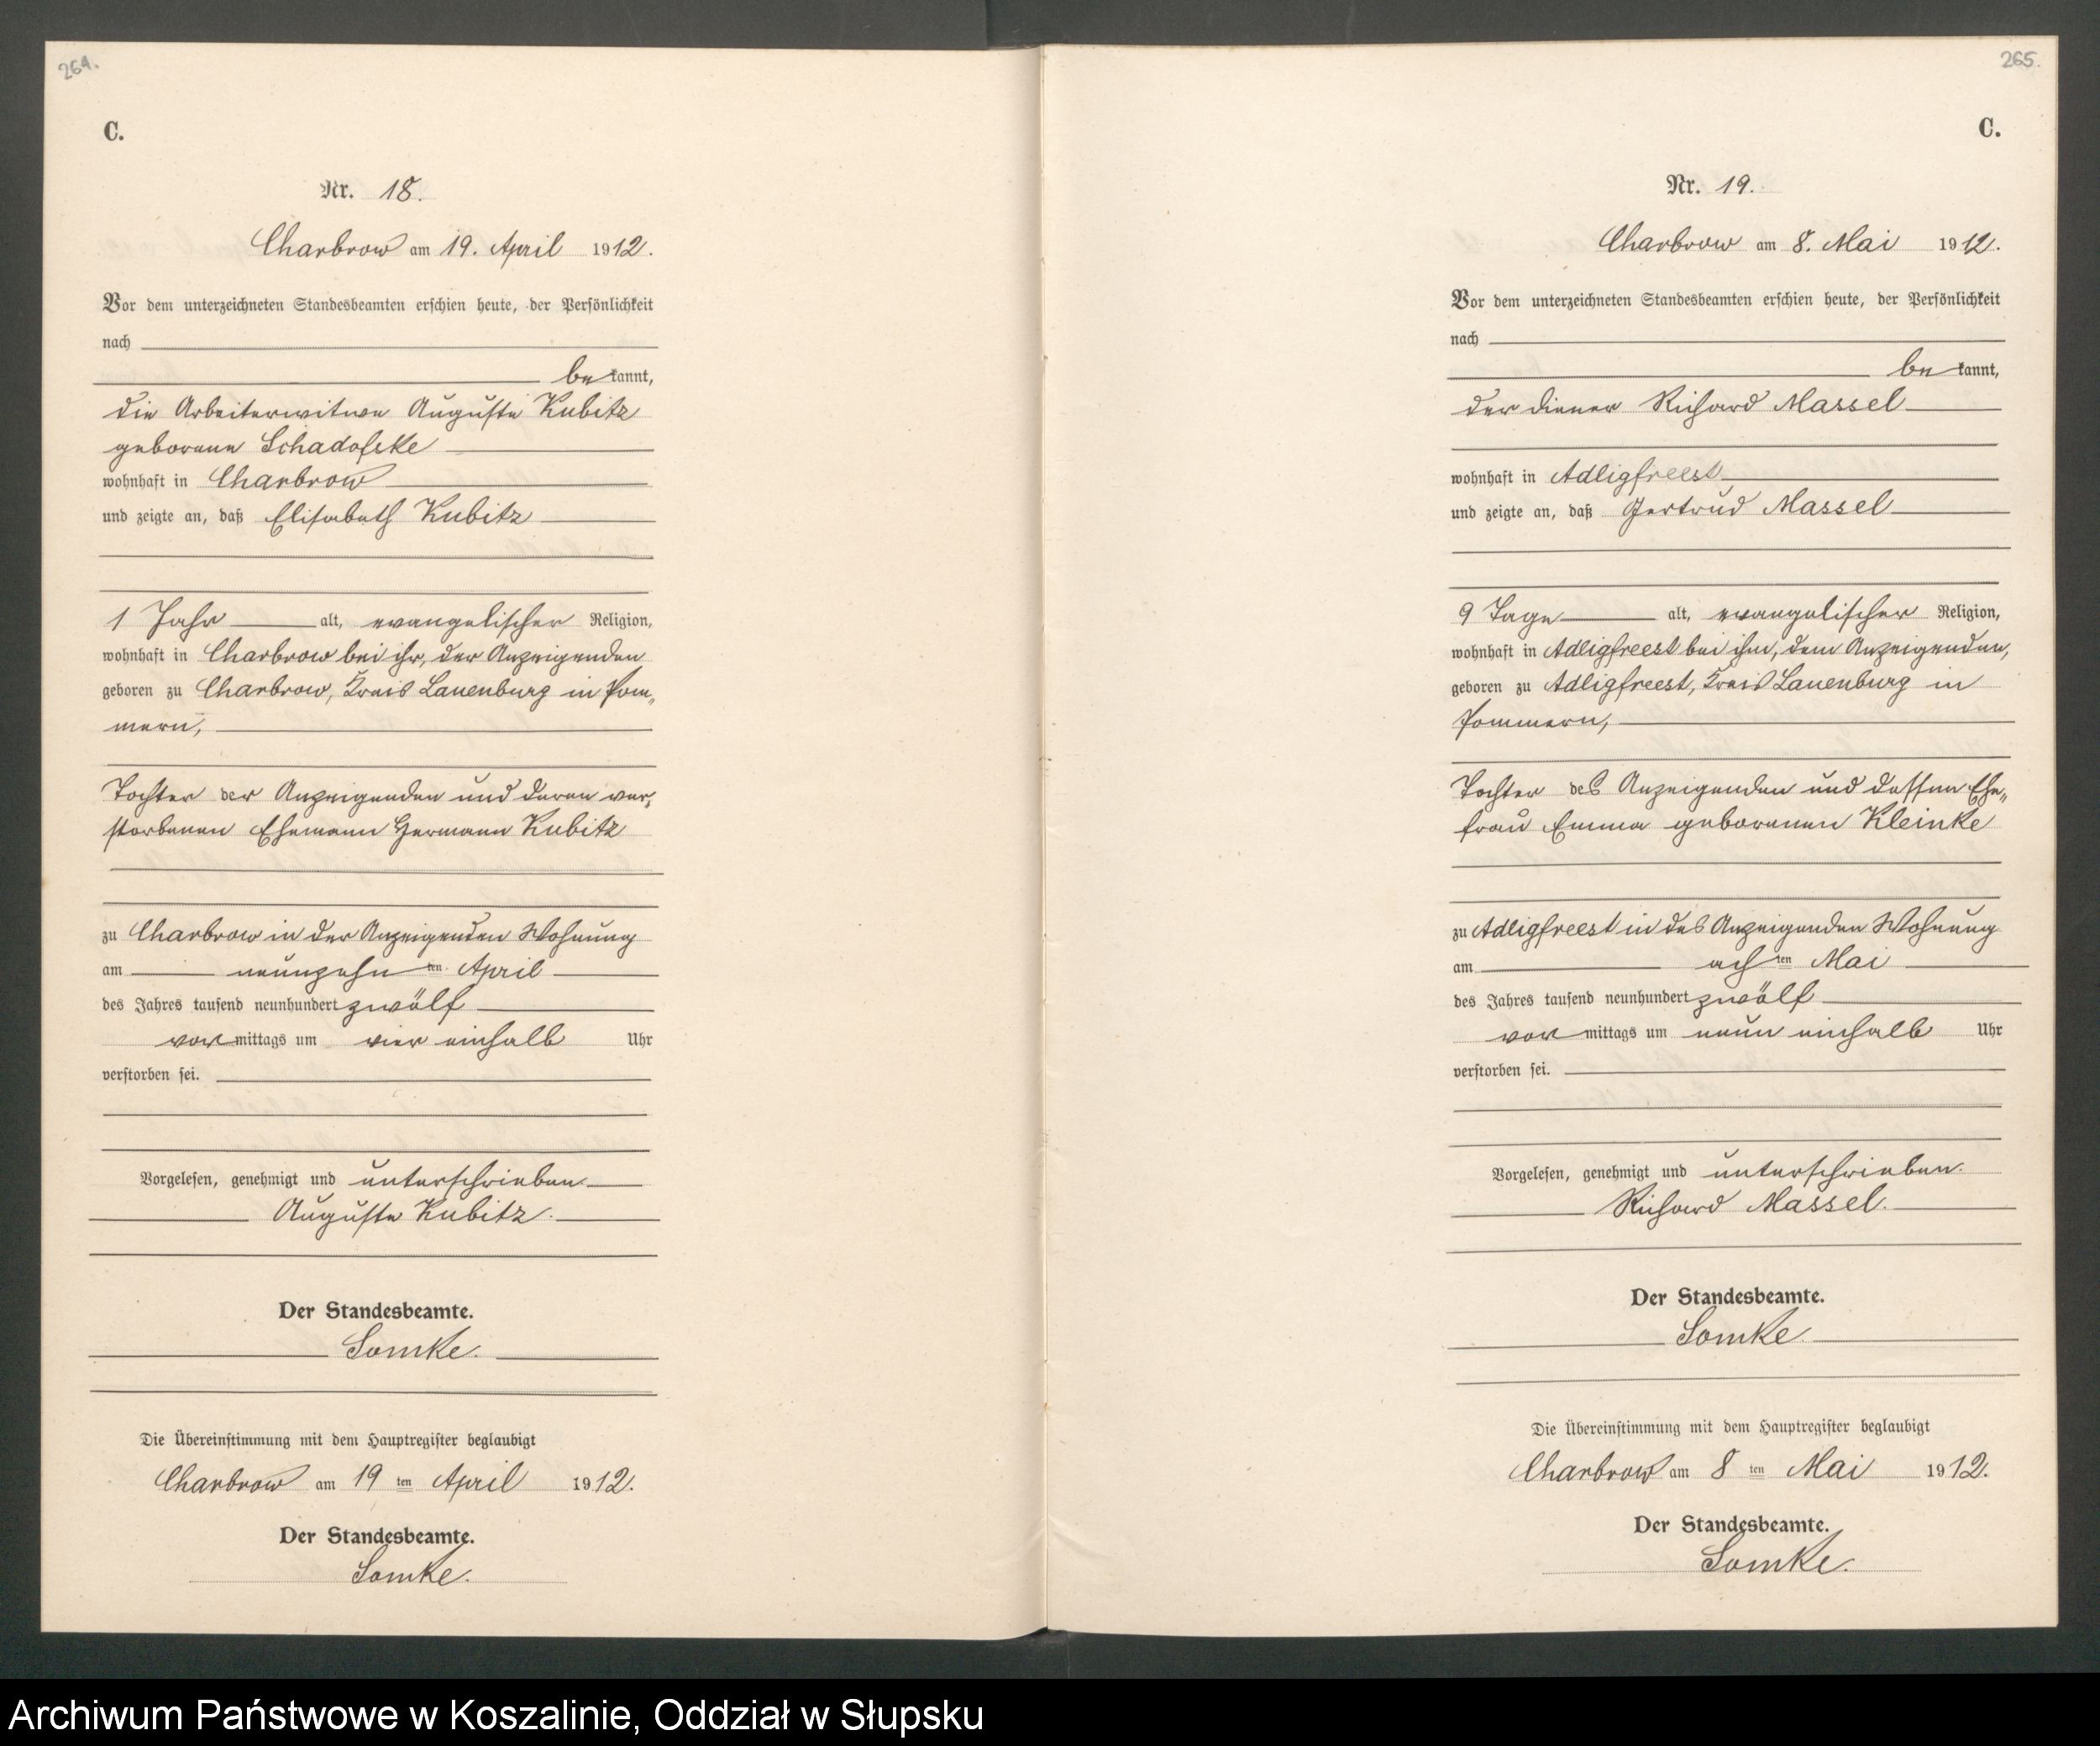 264.
C.
Nr. 18.
Charbrow am 19. April 1912.
Vor dem unterzeichneten Standesbeamten erschien heute, der Persönlichkeit
nach
bekannt,
die Arbeiterwitwe Auguste Kubitz
geborene Schadofske
wohnhaft in Charbrow
und zeigte an, daß Elisabeth Kubitz
1 Jahr alt, evangelischer Religion,
wohnhaft in Charbrow bei ihr, der Anzeigenden
geboren zu Charbrow, Kreis Lauenburg in Pom„
mern,
Tochter der Anzeigenden und deren ver„
storbenen Ehemann Hermann Kubitz
zu Charbrow in der Anzeigenden Wohnung
am neunzehn ten April
des Jahres tausend neunhundert zwölf
vormittags um vier einhalb Uhr
verstorben sei.
Vorgelesen, genehmigt und unterschrieben
Auguste Kubitz.
Der Standesbeamte.
Somke.
Die Übereinstimmung mit dem Hauptregister beglaubigt
Charbrow am 19 ten April 1912.
Der Standesbeamte.
Somke.
265.
C.
Nr. 19.
Charbrow am 8. Mai 1912.
Vor dem unterzeichneten Standesbeamten erschien heute, der Persönlichkeit
nach
bekannt,
der Diener Richard Massel
wohnhaft in Adligfreest
und zeigte an, daß Gertrud Massel
9 Tage alt, evangelischer Religion,
wohnhaft in Adligfreest bei ihm, dem Anzeigenden,
geboren zu Adligfreest, Kreis Lauenburg in
Pommern,
Tochter des Anzeigenden und dessen Ehe„
frau Emma geborenen Kleinke
zu Adligfreest in des Anzeigenden Wohnung
am ach ten Mai
des Jahres tausend neunhundert zwölf
vormittags um neun einhalb Uhr
verstorben sei.
Vorgelesen, genehmigt und unterschrieben.
Richard Massel.
Der Standesbeamte.
Somke
Die Übereinstimmung mit dem Hauptregister beglaubigt
Charbrow am 8 ten Mai 1912.
Der Standesbeamte.
Somke.
Archiwum Państwowe w Koszalinie, Oddział w Słupsku